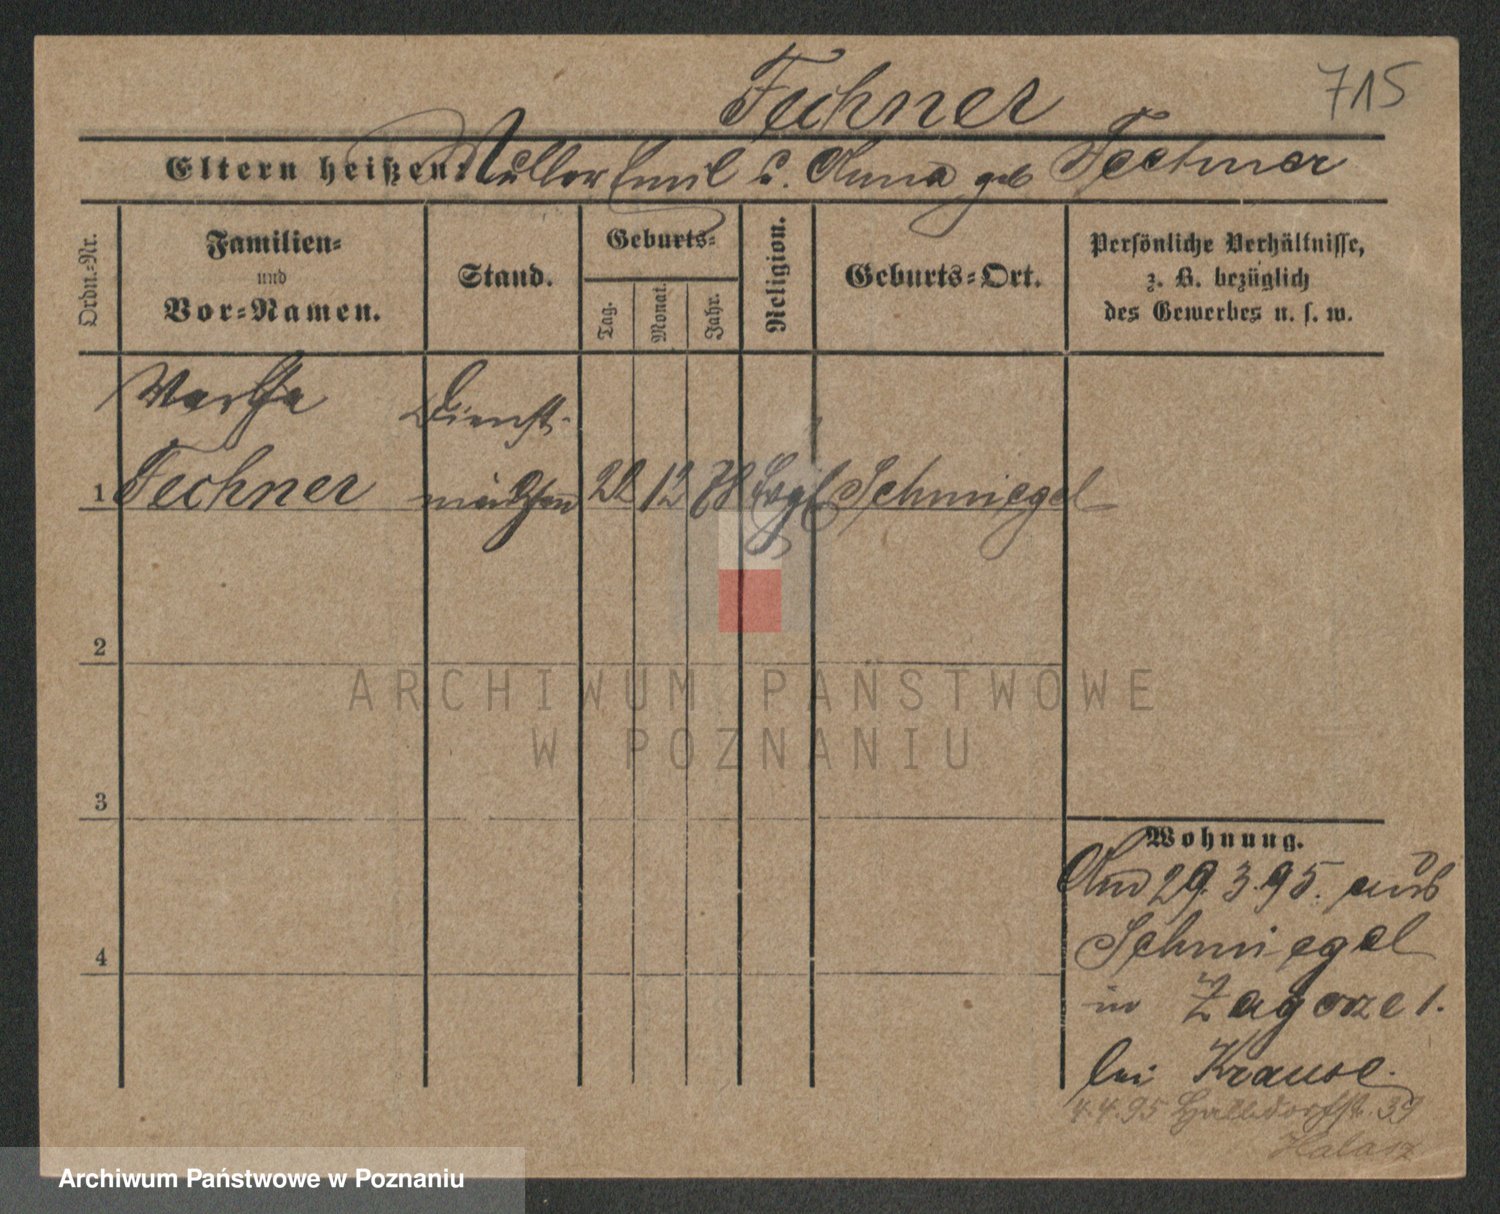 Fechner
715
Eltern heißen: Müller Emil u. Anna geb Fechner
Ordn.-Nr.
Familien-
und
Vor-Namen.
Stand.
Geburts-
Tag.
Monat.
Jahr.
Religion.
Geburts-Ort.
Persönliche Verhältnisse,
z. B. bezüglich
des Gewerbes u. s. w.
Martha
Dienst-
1 Fechner mädchen 22 12 78 evgl Schmiegel
2
3
4
Wohnung.
Am 29.3.95. aus
Schmiegel
in Zagorze 1.
bei Krause.
4.4.95 Halbdorfstr. 39
ARCHIWUM PAŃSTWOWE
W POZNANIU
Archiwum Państwowe w Poznaniu